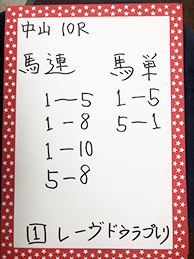 中山 10R
馬連 馬単
1-5 1-5
1-8 5-1
1-10
5-8
1 レーヴドゥラプレリ